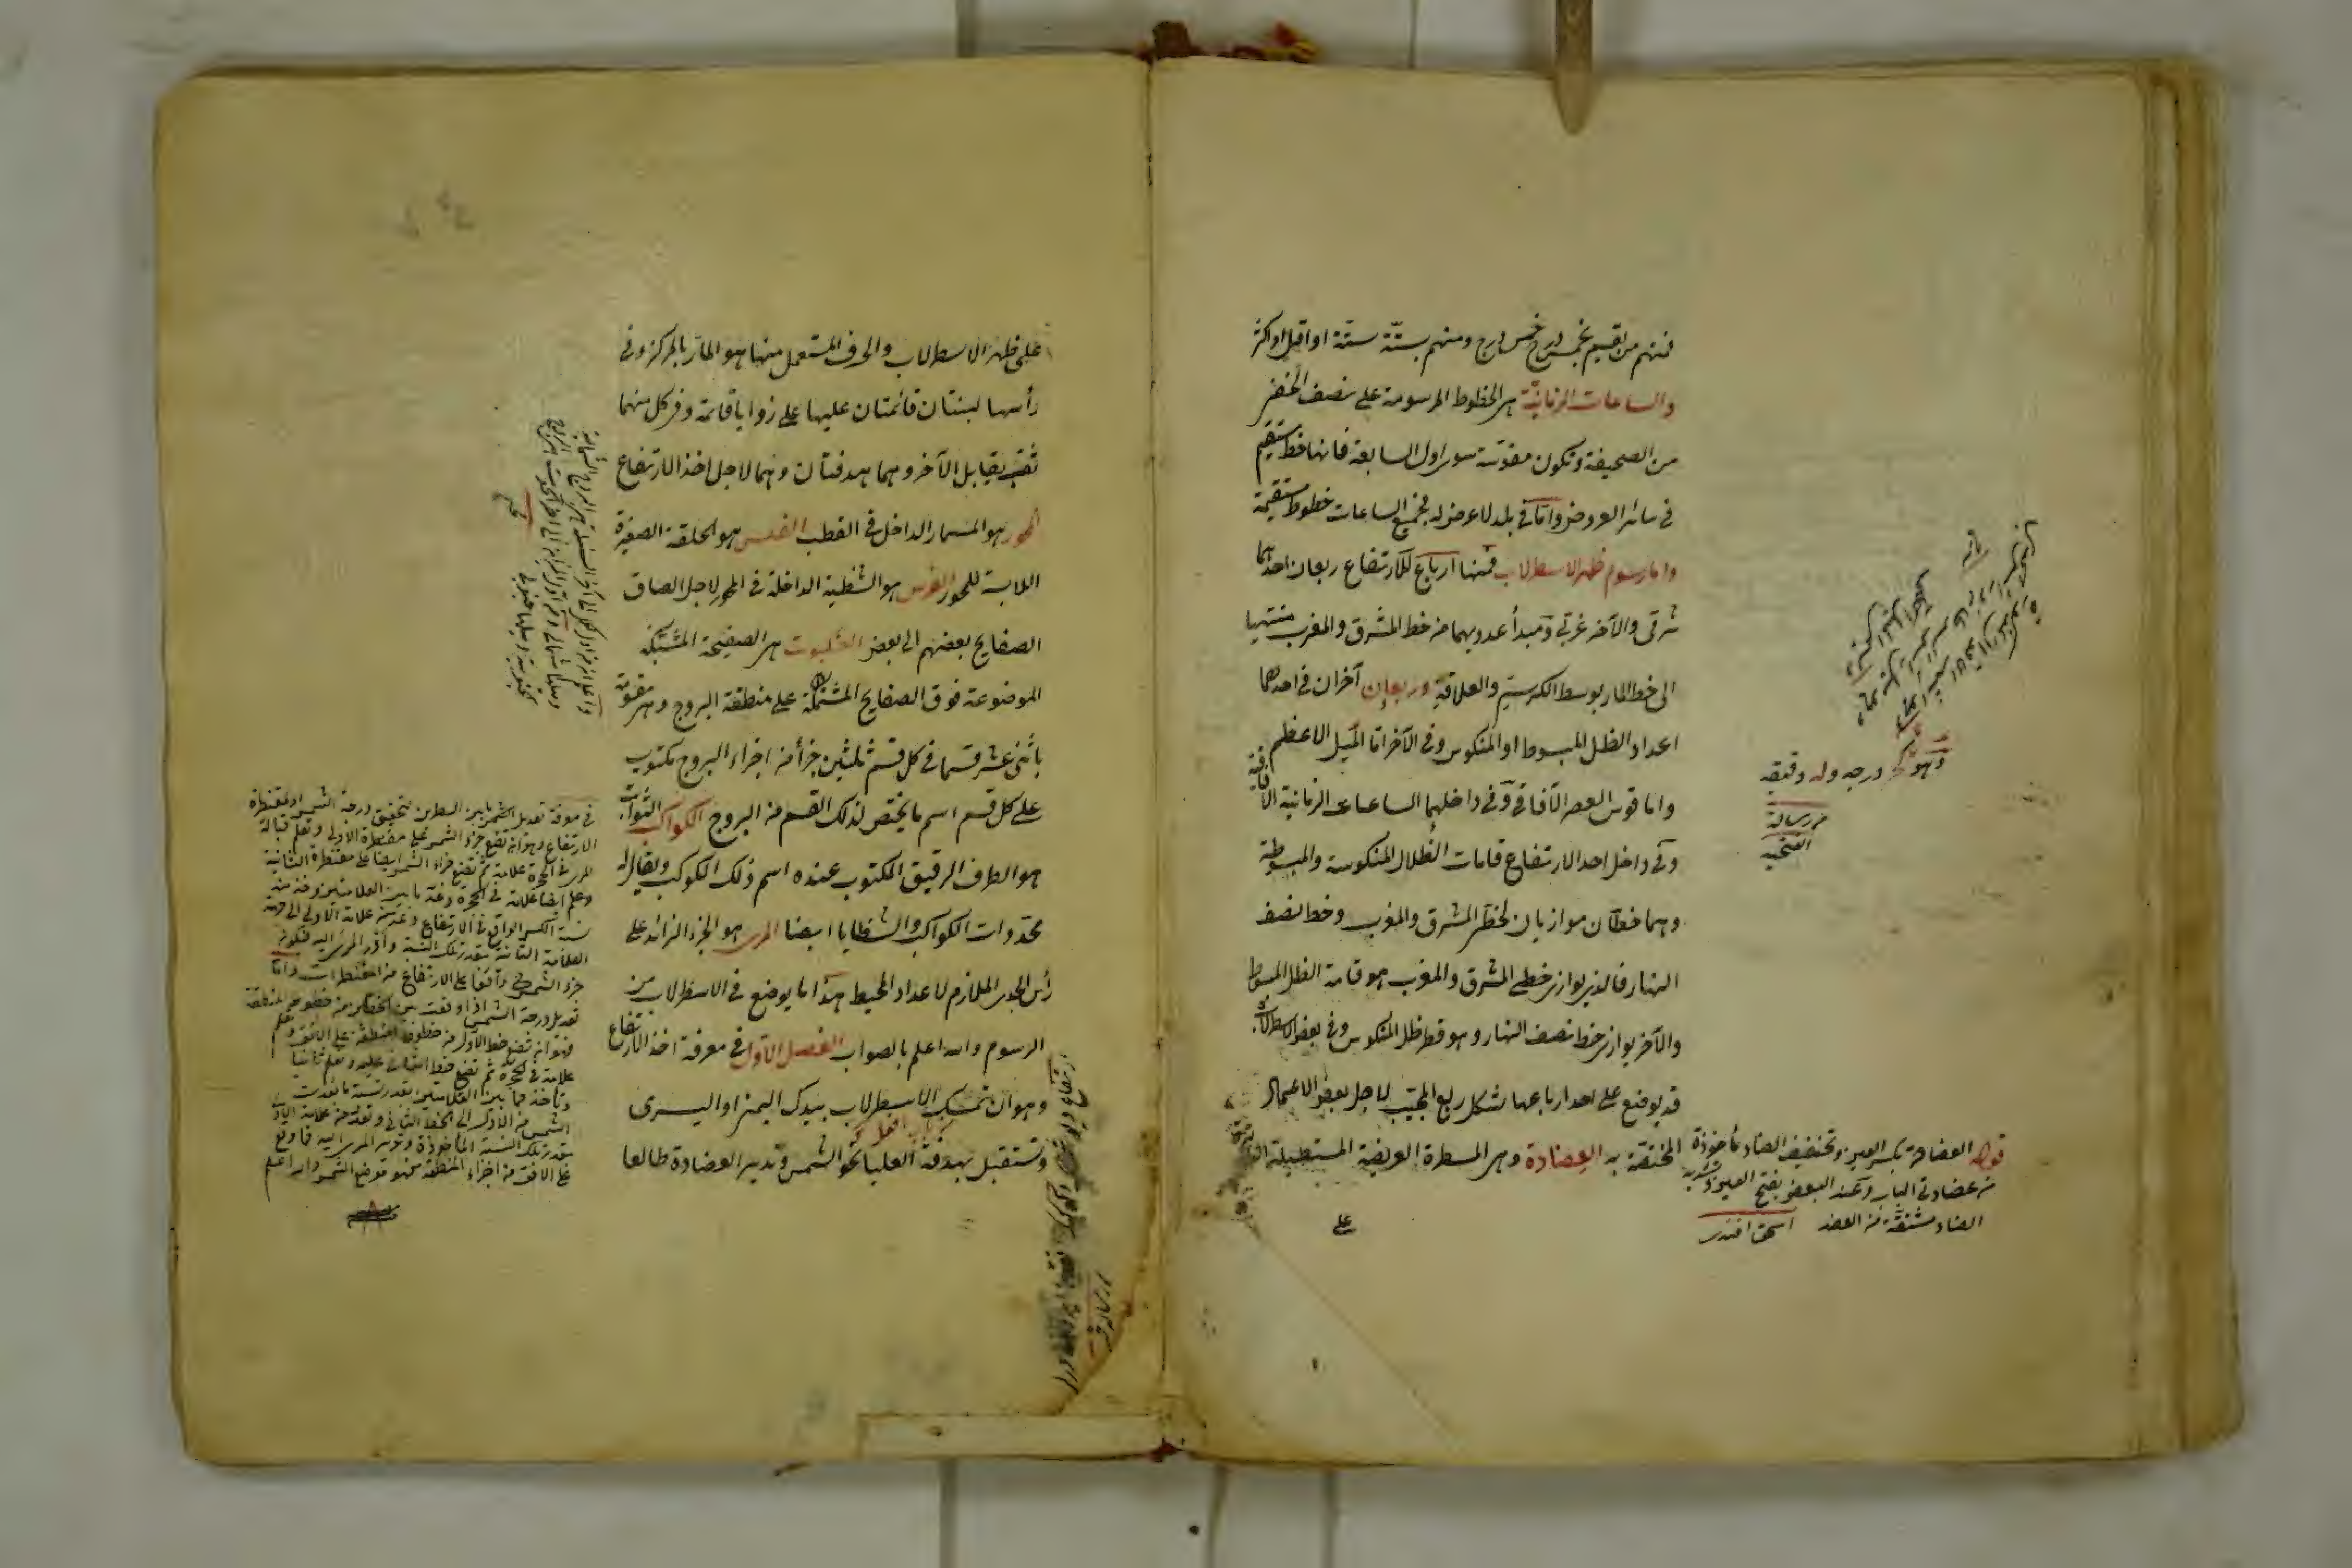 فمنهم من يقسم بخمس درج خمس درج ومنهم بستة ستة او اقل او اكثر
والساعات الزمانية هى الخطوط المرسومة على نصف الاخفض
من الصحيفة وتكون مقوسة سوى اول السابعة فانها خط مستقيم
فى سائر العروض واما فى بلد لا عرض له فجميع الساعات خطوط مستقيمة
واما رسوم ظهر الاسطرلاب فمنها ارباع للارتفاع ربعان احدهما
شرقى والآخر غربى ومبدأ عدديهما من خط المشرق والمغرب منتهيا
الى خط المار بوسط الكرسى والعلاقة وربعان آخران فى احدهما
اعداد الظل المبسوط او المنكوس وفى الآخر اما الميل الاعظم
واما قوس العصر الآفاقى وفى داخلهما الساعات الزمانية الآفاقية
وفى داخل احد الارتفاع قامات الظلال المنكوسة والمبسوطة
وهما خطان موازيان لخطى المشرق والمغرب وخط نصف
النهار فالذى يوازى خطى المشرق والمغرب هو قامة الظل المبسوط
والآخر يوازى خط نصف النهار وهو قطر ظل المنكوس وفى بعض الاسطرلاب
قد يوضع على احد ارباعها شكل ربع المجيب لاجل بعض الاعمال
المختصة به العضادة وهى المسطرة العريضة المستطيلة
على
وهو كج درجه وله دقيقه
من رسالة
الفتحيه
قوله العضادة بكسر العين وتخفيف الضاد مأخوذة
من عضادتى الباب وعند البعض بفتح العين وتشديد
الضاد مشتقة من العضد اسحق افندى
على ظهر الاسطرلاب والحرف المستعمل منها هو المار بالمركز وفى
رأسها لبنتان قائمتان عليها على زوايا قائمة وفى كل منهما
ثقب يقابل الآخر وهما هدفتان وهما لاجل اخذ الارتفاع
المحور هو المسمار الداخل فى القطب الفلس هو الحلقة الصغيرة
اللابسة للمحور الفرس هو الشظية الداخلة فى المحور لاجل الصاق
الصفايح بعضهم الى بعض العنكبوت هى الصفيحة المشبكة
الموضوعة فوق الصفايح المشتملة على منطقة البروج وهى مقسومة
باثنى عشر قسما فى كل قسم ثلثين جزأ من اجزاء البروج مكتوب
على كل قسم اسم ما يختص لذلك القسم من البروج الكواكب الثوابت
هو الطرف الرقيق المكتوب عنده اسم ذلك الكوكب ويقال له
محددات الكواكب والشظايا ايضا المرى هو الجزء الزائد على
رأس الجدى الملازم لاعداد المحيط هذا ما يوضع فى الاسطرلاب من
الرسوم والله اعلم بالصواب الفصل الاول فى معرفة اخذ الارتفاع
وهو ان تمسك الاسطرلاب بيدك اليمنى او اليسرى
وتستقبل بهدفة العليا نحو الشمس وتدير العضادة طالعا
فى معرفة تعديل الشمس بين السطرين تحقيق درجة الشمس او لمقنطرة
الارتفاع وهو انه تضع جزء الشمس على مقنطرة الاولى وتعلم قبالة
المرى فى الحجرة علامة ثم تضع جزء الشمس ايضا على مقنطرة الثانية
وتعلم ايضا علامة فى الحجرة وعد ما بين العلامتين وخذ منه
نسبة الكسر الواقع فى الارتفاع وعد من علامة الاولى الى جهة
العلامة الثانية بقدر تلك النسبة وادر المرى اليه فتكون
جزء الشمس واقعا على الارتفاع من المقنطرات واما
تعديل درجة الشمس اذا وقعت بين الخطين من خطوط المنطقة
فهو انه تضع خط الاول من خطوط المنطقة على الافق وتعلم
علامة فى الحجرة ثم تضع خط الثانى عليه وتعلم ثانيا
وتأخذ مما بين العلامتين بقدر نسبة ما بعدت
الشمس من الاول الى الخط الثانى وتعد من علامة الاول
بقدر تلك النسبة المأخوذة وتدير المرى اليه فما وقع
على الافق من اجزاء المنطقة فهو موضع الشمس والله اعلم